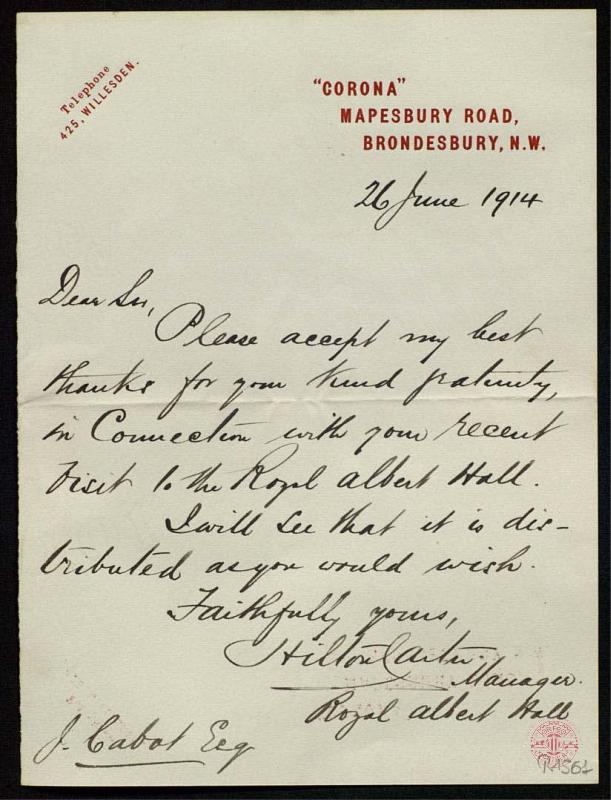 Telephone
425, WILLESDEN.
"CORONA"
MAPESBURY ROAD,
BRONDESBURY, N.W.
26 June 1914
Dear Sir,
Please accept my best
thanks for your kind gratuity,
in Connection with your recent
visit to the Royal Albert Hall.
I will see that it is dis-
tributed as you would wish.
Faithfully yours,
Hilton Carter.
Manager.
Royal Albert Hall
J. Cabot Esq